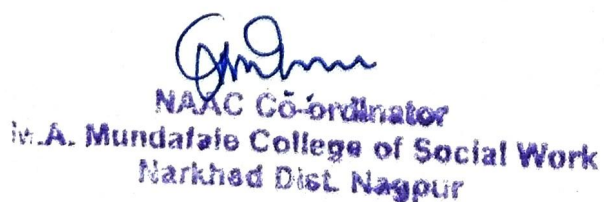 NAAC Co-ordinator
M.A. Mundafale College of Social Work
Narkhed Dist. Nagpur